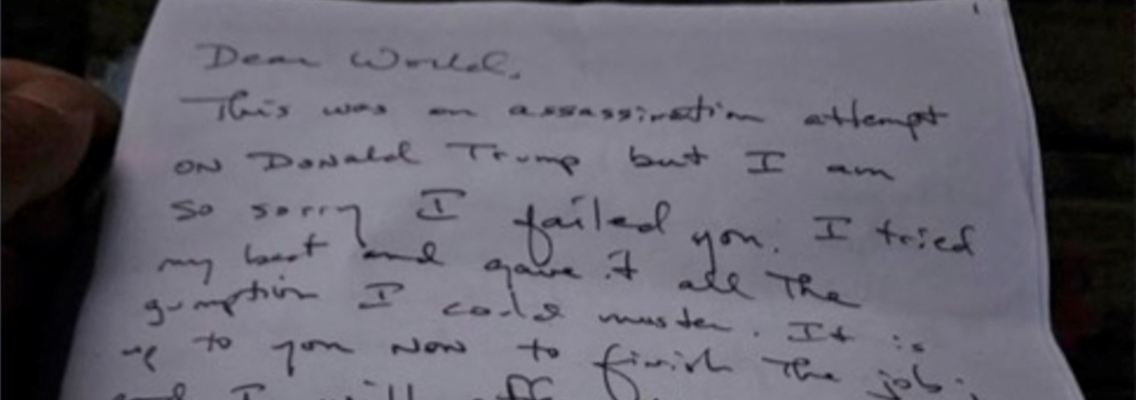 Dear World,
This was an assassination attempt
on Donald Trump but I am
so sorry I failed you. I tried
my best and gave it all the
gumption I could muster. It is
up to you now to finish the job;
and I will off